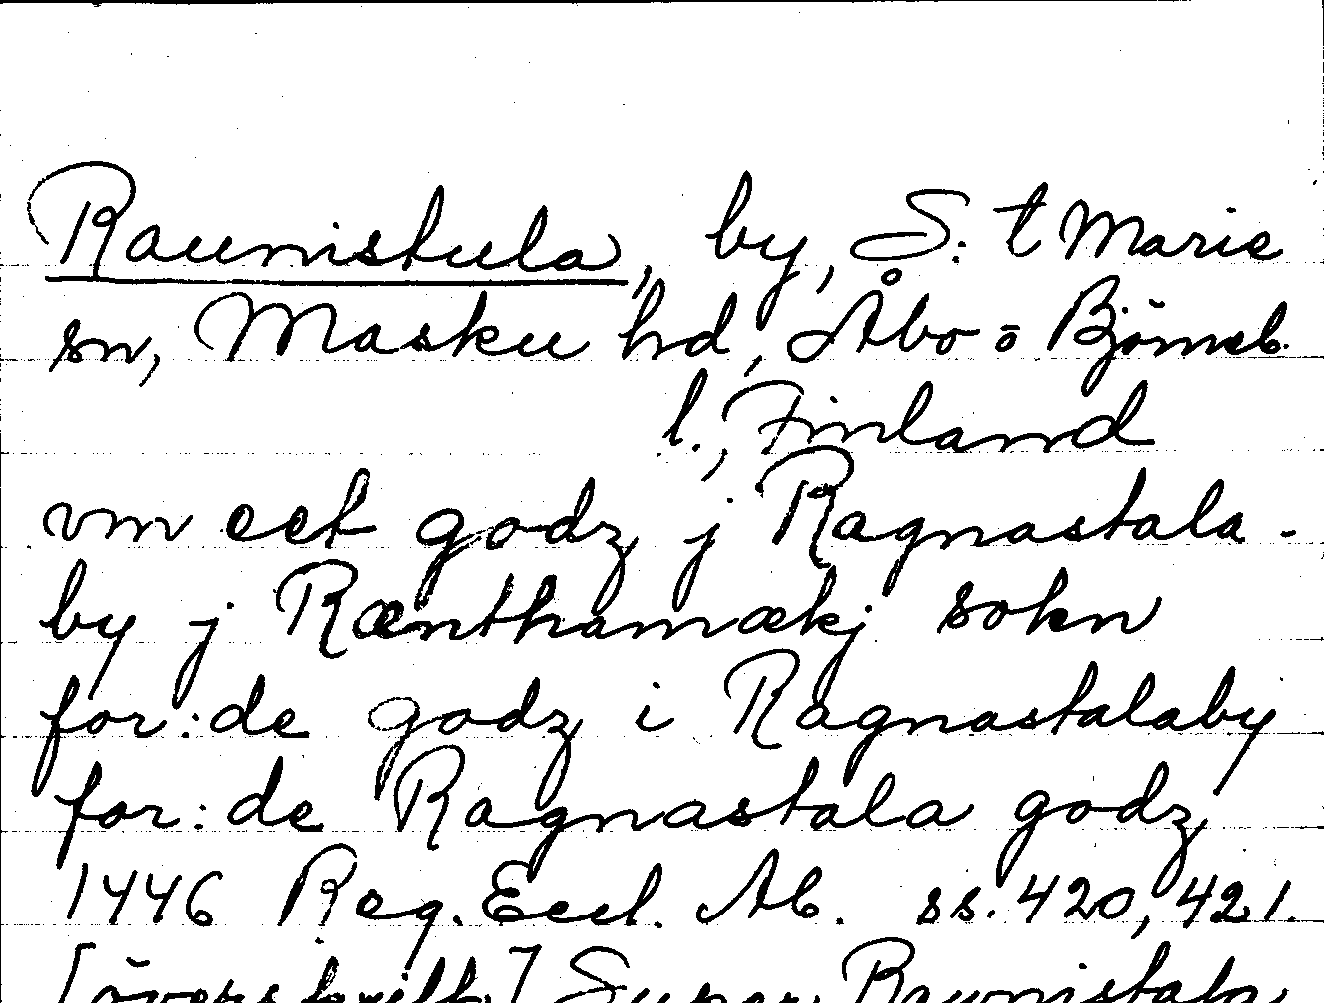 Raunistula, by, S:t Marie
sn, Masku hd, Åbo o Björneb.
l., Finland
vm eet godz j Ragnastala-
by j Rænthamækj sokn
for:de godz i Ragnastalaby
for:de Ragnastala godz
1446 Reg. Eccl. Ab. ss. 420, 421.
[överskrift] Super Raunistala